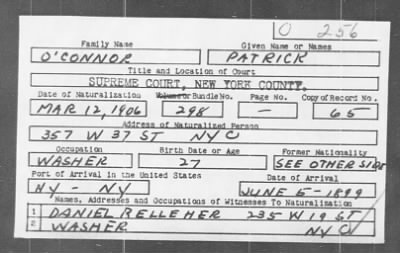 O 256
Family Name Given Name or Names
O'CONNOR PATRICK
Title and Location of Court
SUPREME COURT, NEW YORK COUNTY.
Date of Naturalization Volume or Bundle No. Page No. Copy of Record No.
MAR 12, 1906 298 — 65
Address of Naturalized Person
357 W 37 ST NYC
Occupation Birth Date or Age Former Nationality
WASHER 27 SEE OTHER SIDE
Port of Arrival in the United States Date of Arrival
NY - NY JUNE 5-1899
Names, Addresses and Occupations of Witnesses To Naturalization
1 DANIEL KELLEHER 235 W 19 ST
2 WASHER NYC